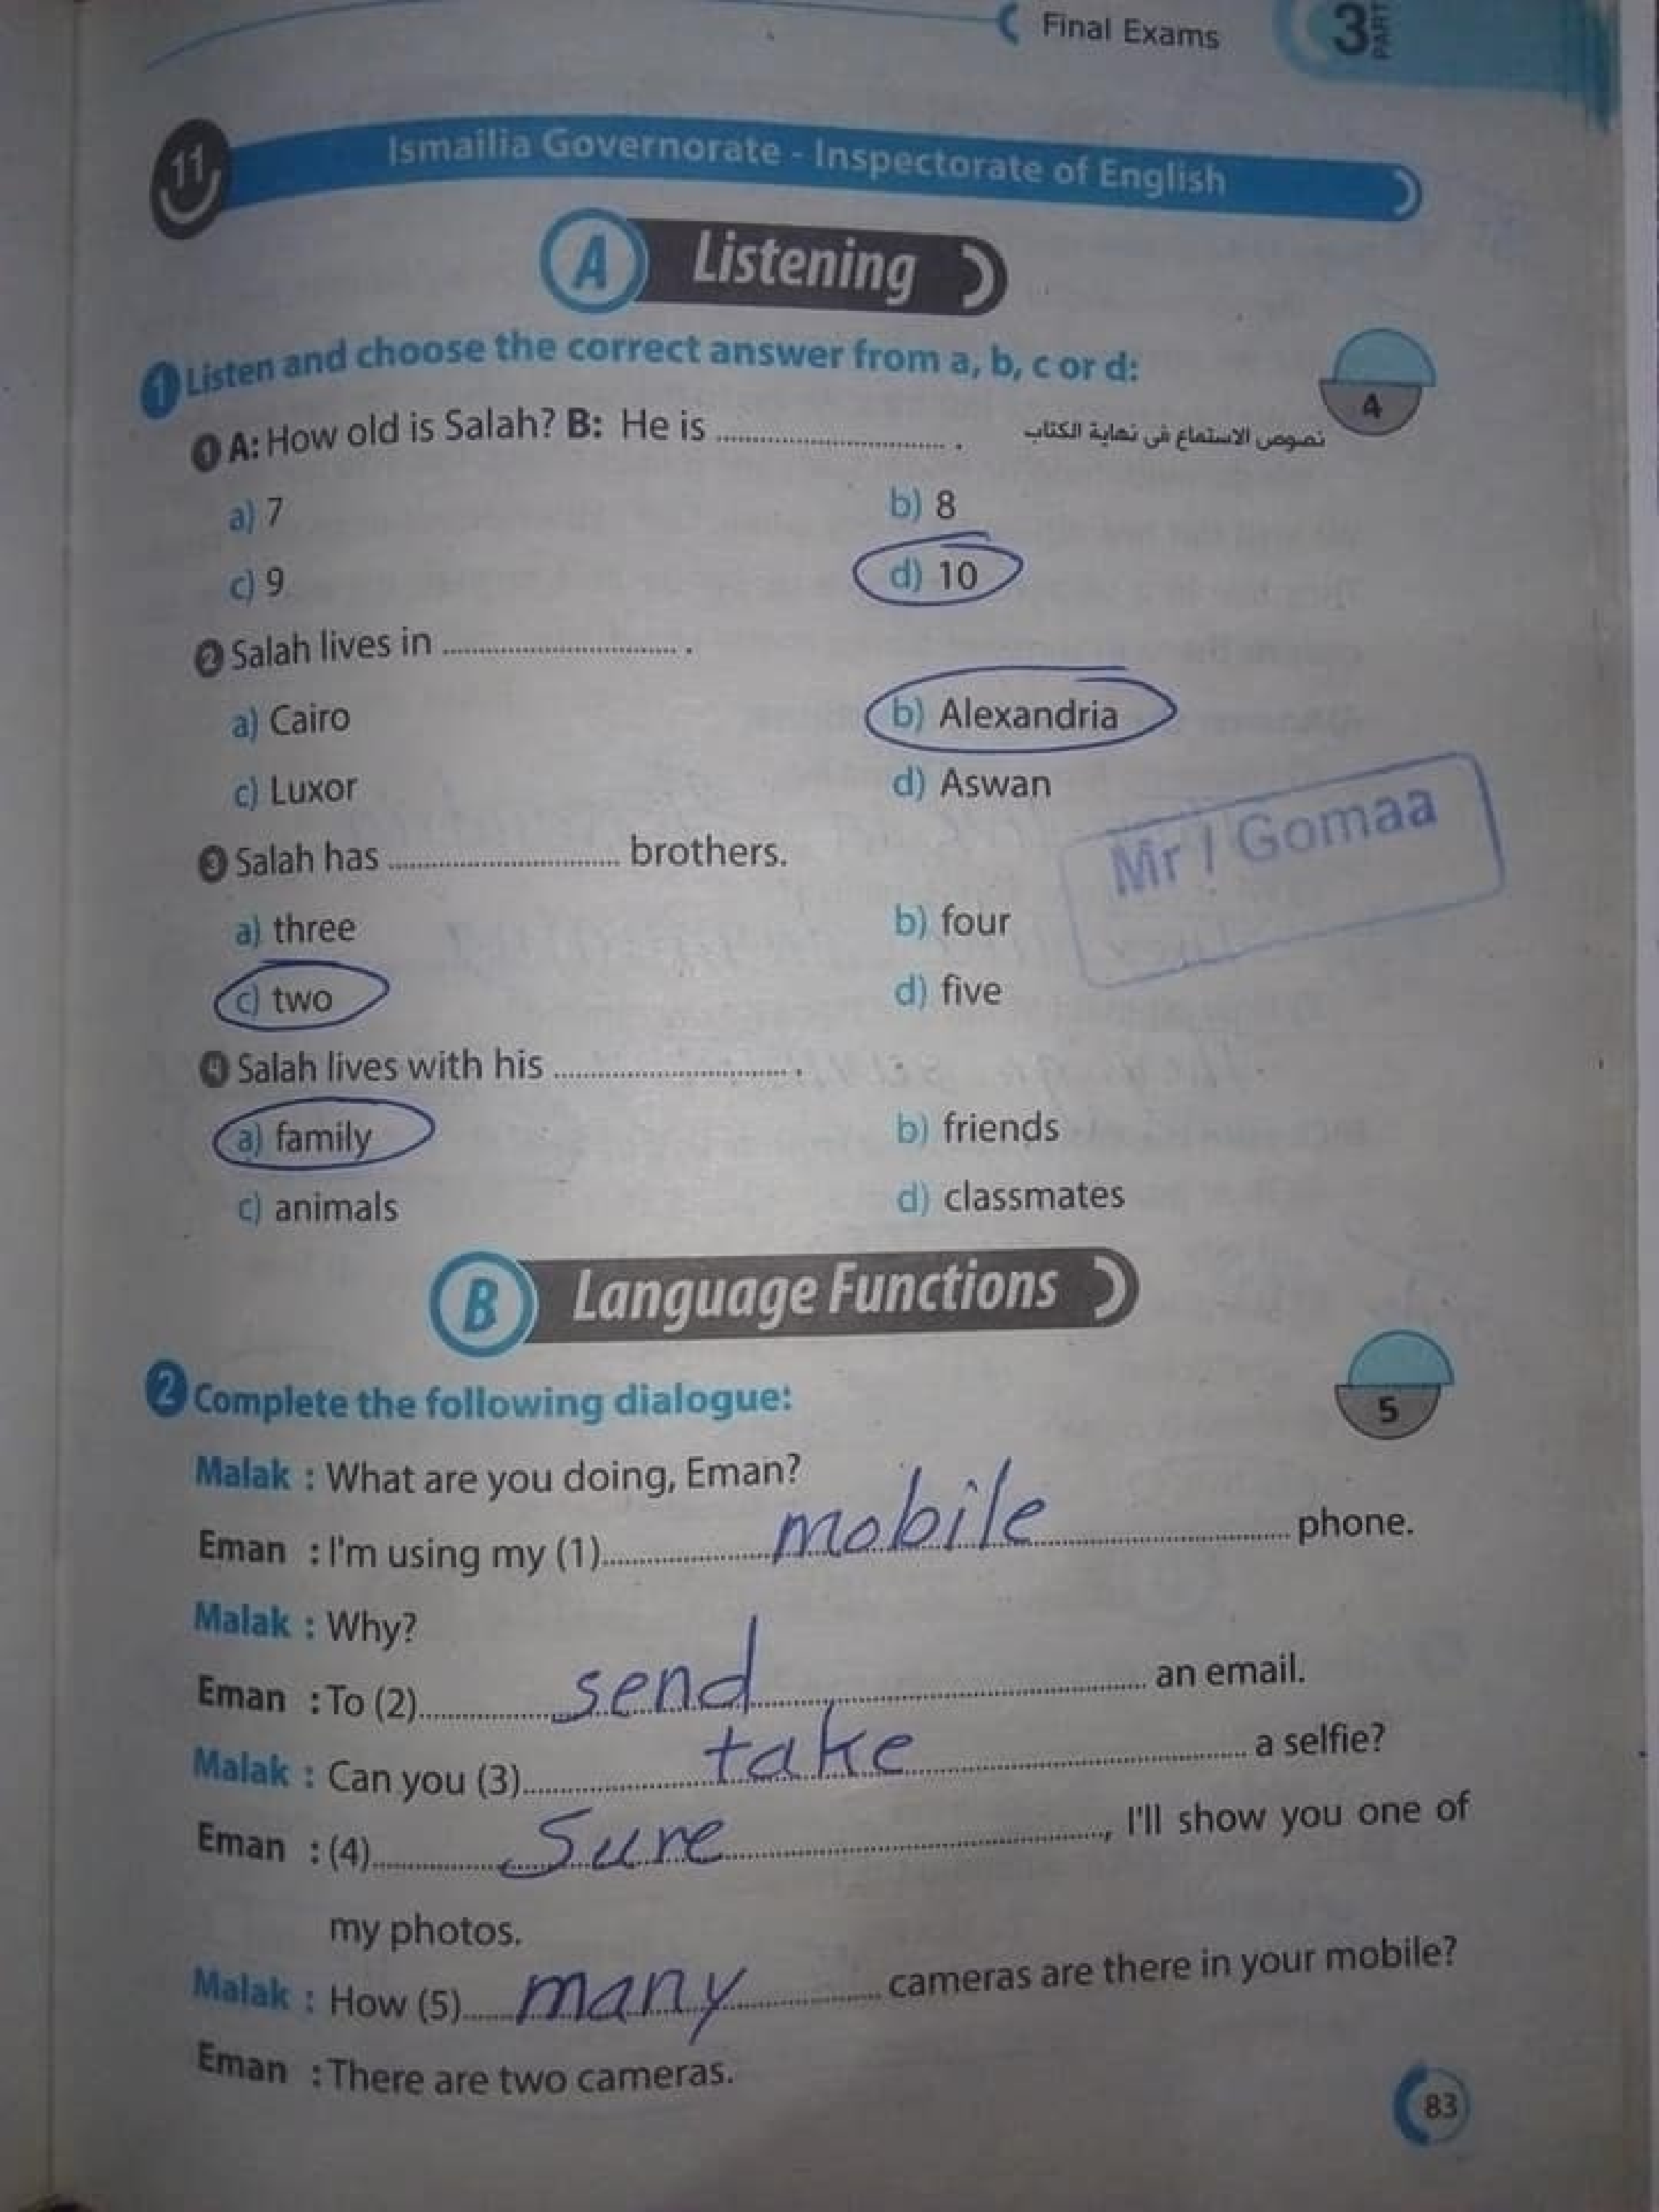 Final Exams
3 PART
11 Ismailia Governorate - Inspectorate of English
A Listening
1 Listen and choose the correct answer from a, b, c or d:
4
1 A: How old is Salah? B: He is ........................ .
نصوص الاستماع فى نهاية الكتاب
a) 7 b) 8
c) 9 d) 10
2 Salah lives in ........................ .
a) Cairo b) Alexandria
c) Luxor d) Aswan
3 Salah has ........................ brothers.
Mr / Gomaa
a) three b) four
c) two d) five
4 Salah lives with his ........................ .
a) family b) friends
c) animals d) classmates
B Language Functions
2 Complete the following dialogue:
5
Malak : What are you doing, Eman?
Eman : I'm using my (1) mobile phone.
Malak : Why?
Eman : To (2) send an email.
Malak : Can you (3) take a selfie?
Eman : (4) Sure, I'll show you one of
my photos.
Malak : How (5) many cameras are there in your mobile?
Eman : There are two cameras.
83